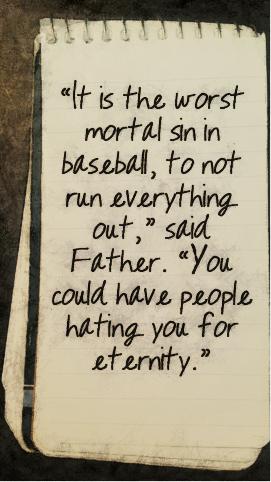 “It is the worst
mortal sin in
baseball, to not
run everything
out,” said
Father. “You
could have people
hating you for
eternity.”